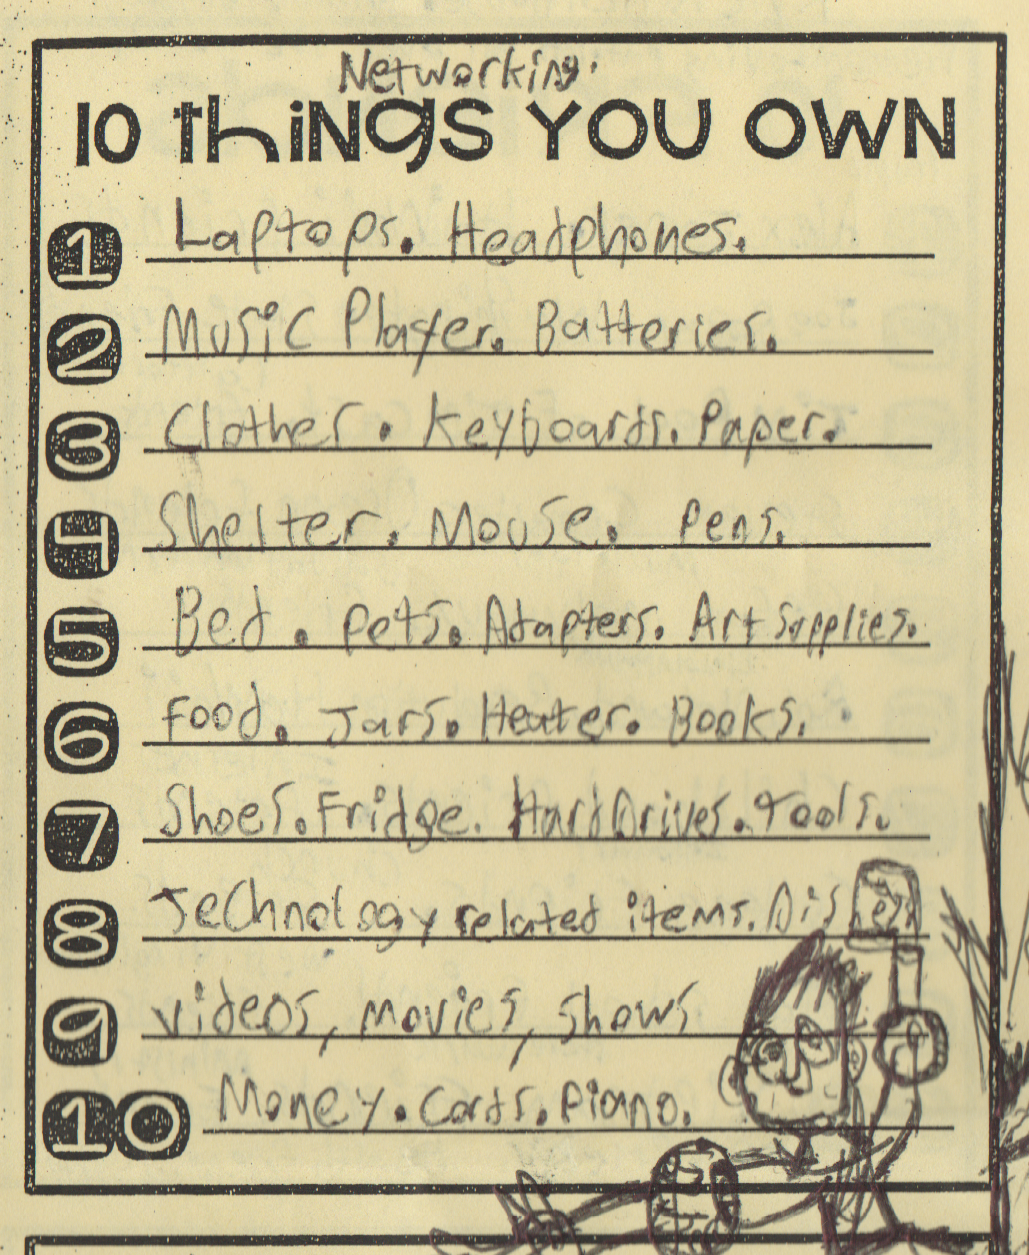 Networking:
10 THINGS YOU OWN
1 Laptops. Headphones.
2 Music Player. Batteries.
3 Clothes. Keyboards. Paper.
4 Shelter. Mouse. Pens.
5 Bed. Pets. Adapters. Art Supplies.
6 Food. Jars. Heater. Books.
7 Shoes. Fridge. Hard Drives. Tools.
8 Technology related items. Dishes
9 Videos, movies, shows
10 Money. Cards. Piano.